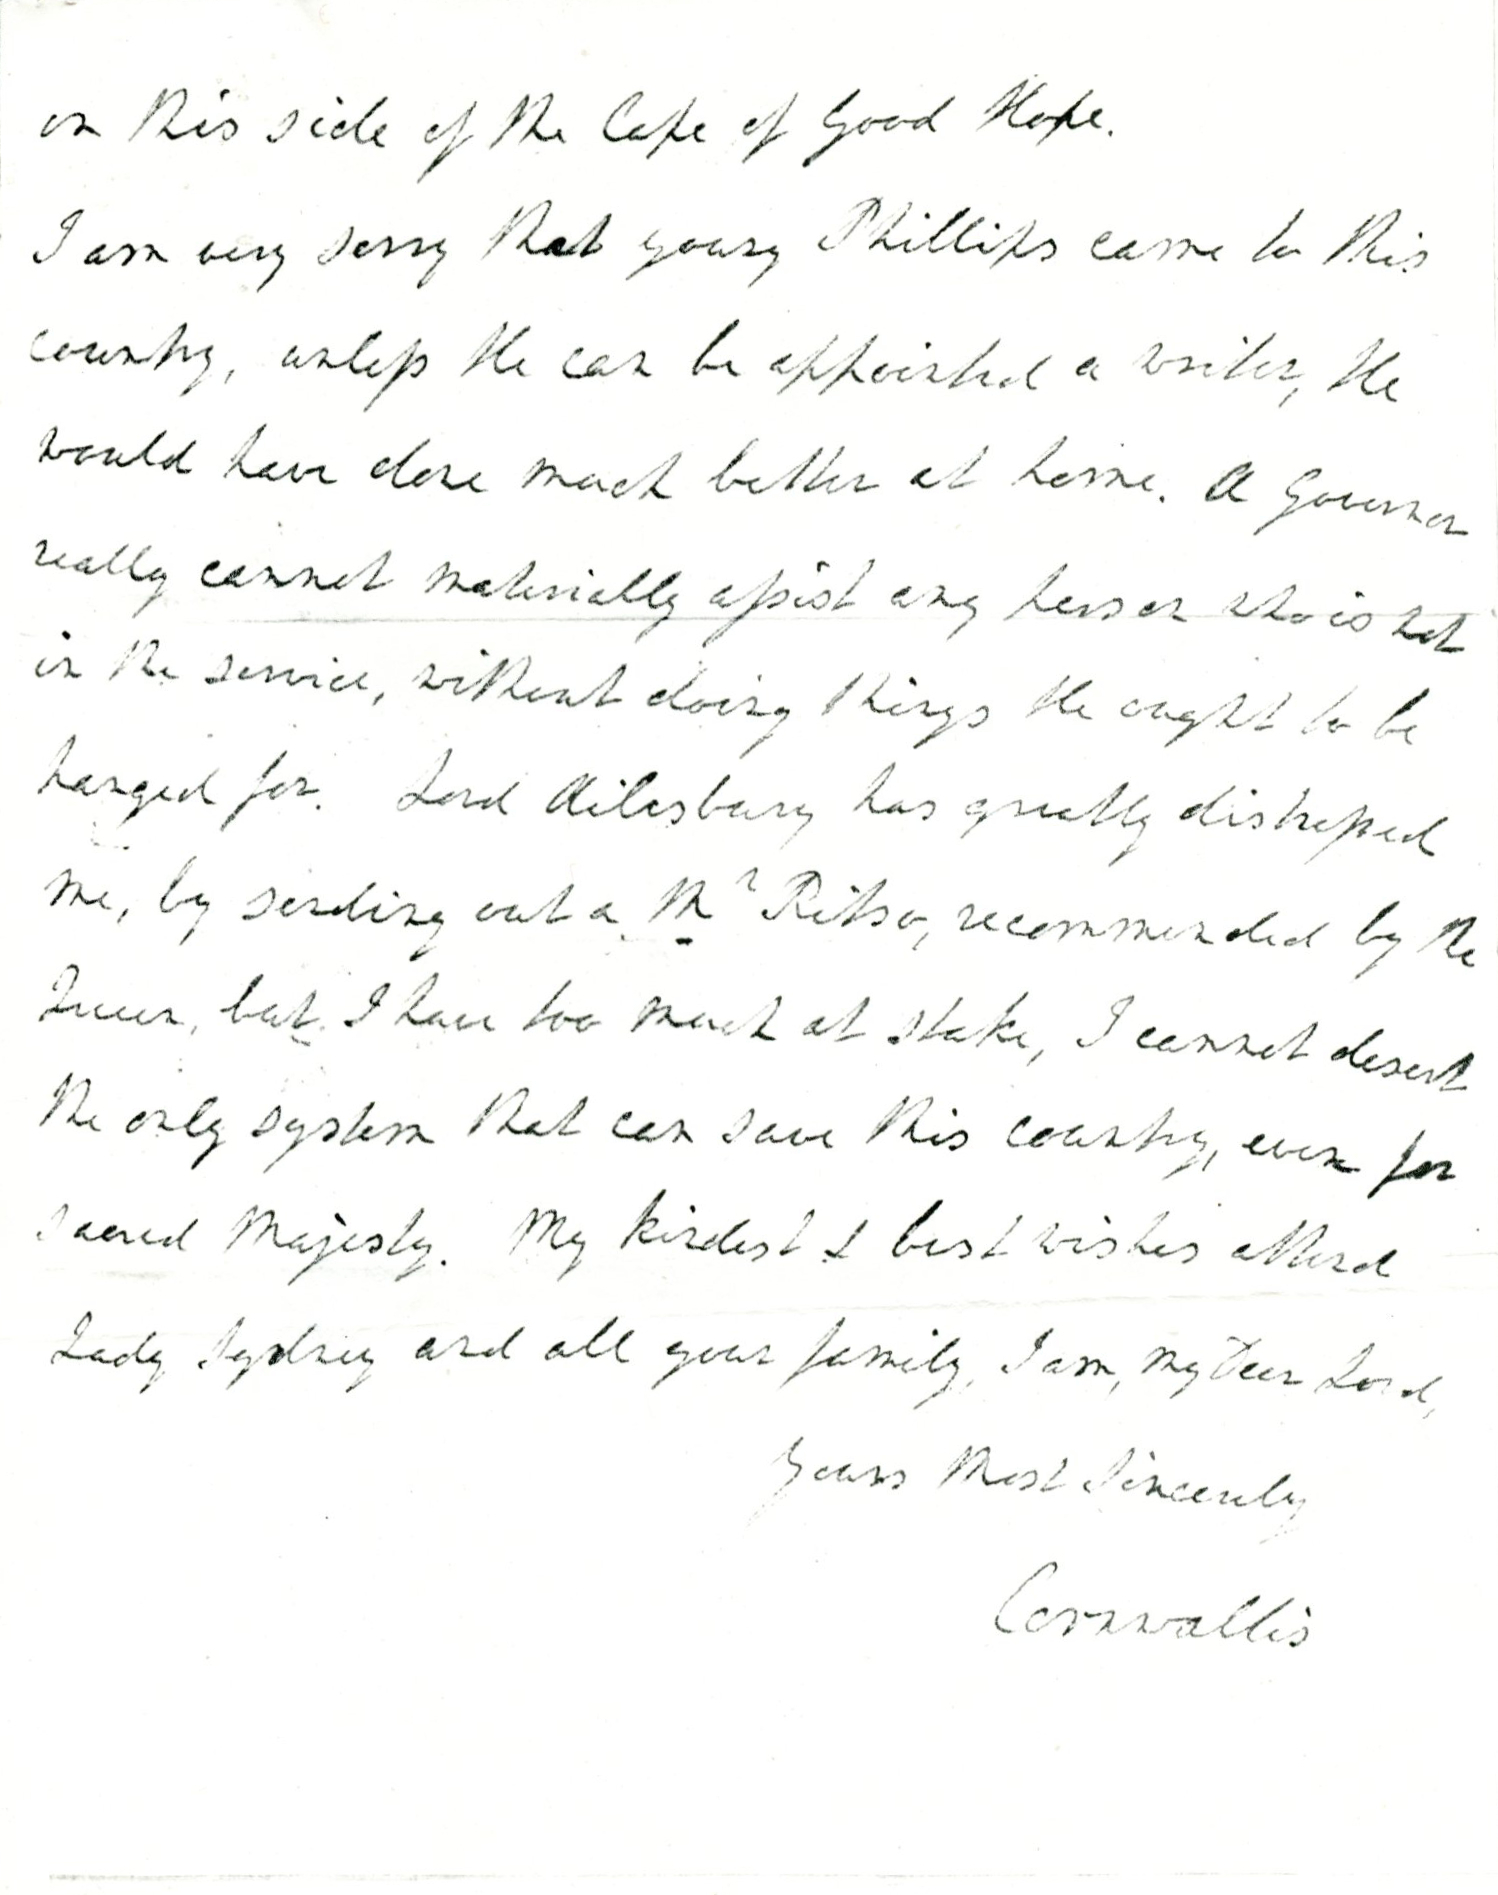 on this side of the Cape of Good Hope.
I am very sorry that young Phillips came to this
country, unless He can be appointed a writer, He
would have done much better at home. A Governor
really cannot materially assist any person who is not
in the service, without doing things He ought to be
hanged for. Lord Ailesbury has greatly distressed
me, by sending out a Mr Ritso, recommended by the
Queen, but I have too much at stake, I cannot desert
the only system that can save this country, even for
sacred Majesty. My kindest & best wishes attend
Lady Sydney and all your family, I am, my Dear Lord,
Yours Most Sincerely
Cornwallis